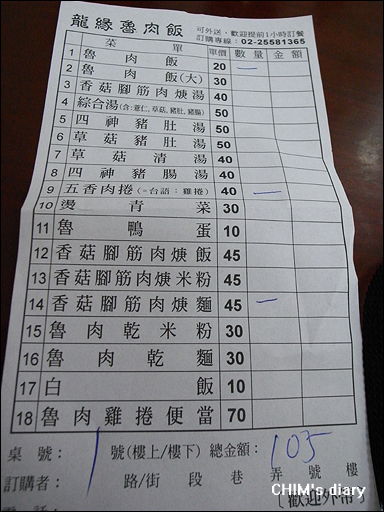 龍緣魯肉飯
可外送,歡迎提前1小時訂餐
訂購專線:02-25581365
菜單 單價 數量 金額
1 魯肉飯 20 一
2 魯肉飯(大) 30
3 香菇腳筋肉焿湯 40
4 綜合湯(含:薏仁,草菇,豬肚,豬腸) 50
5 四神豬肚湯 50
6 草菇豬肚湯 50
7 草菇清湯 40
8 四神豬腸湯 40
9 五香肉捲(=台語:雞捲) 40 一
10 燙青菜 30
11 魯鴨蛋 10
12 香菇腳筋肉焿飯 45
13 香菇腳筋肉焿米粉 45
14 香菇腳筋肉焿麵 45 一
15 魯肉乾米粉 30
16 魯肉乾麵 30
17 白飯 10
18 魯肉雞捲便當 70
桌號: 1 號(樓上/樓下) 總金額: 105
訂購者: 路/街 段 巷 弄 號 樓
CHIM's diary